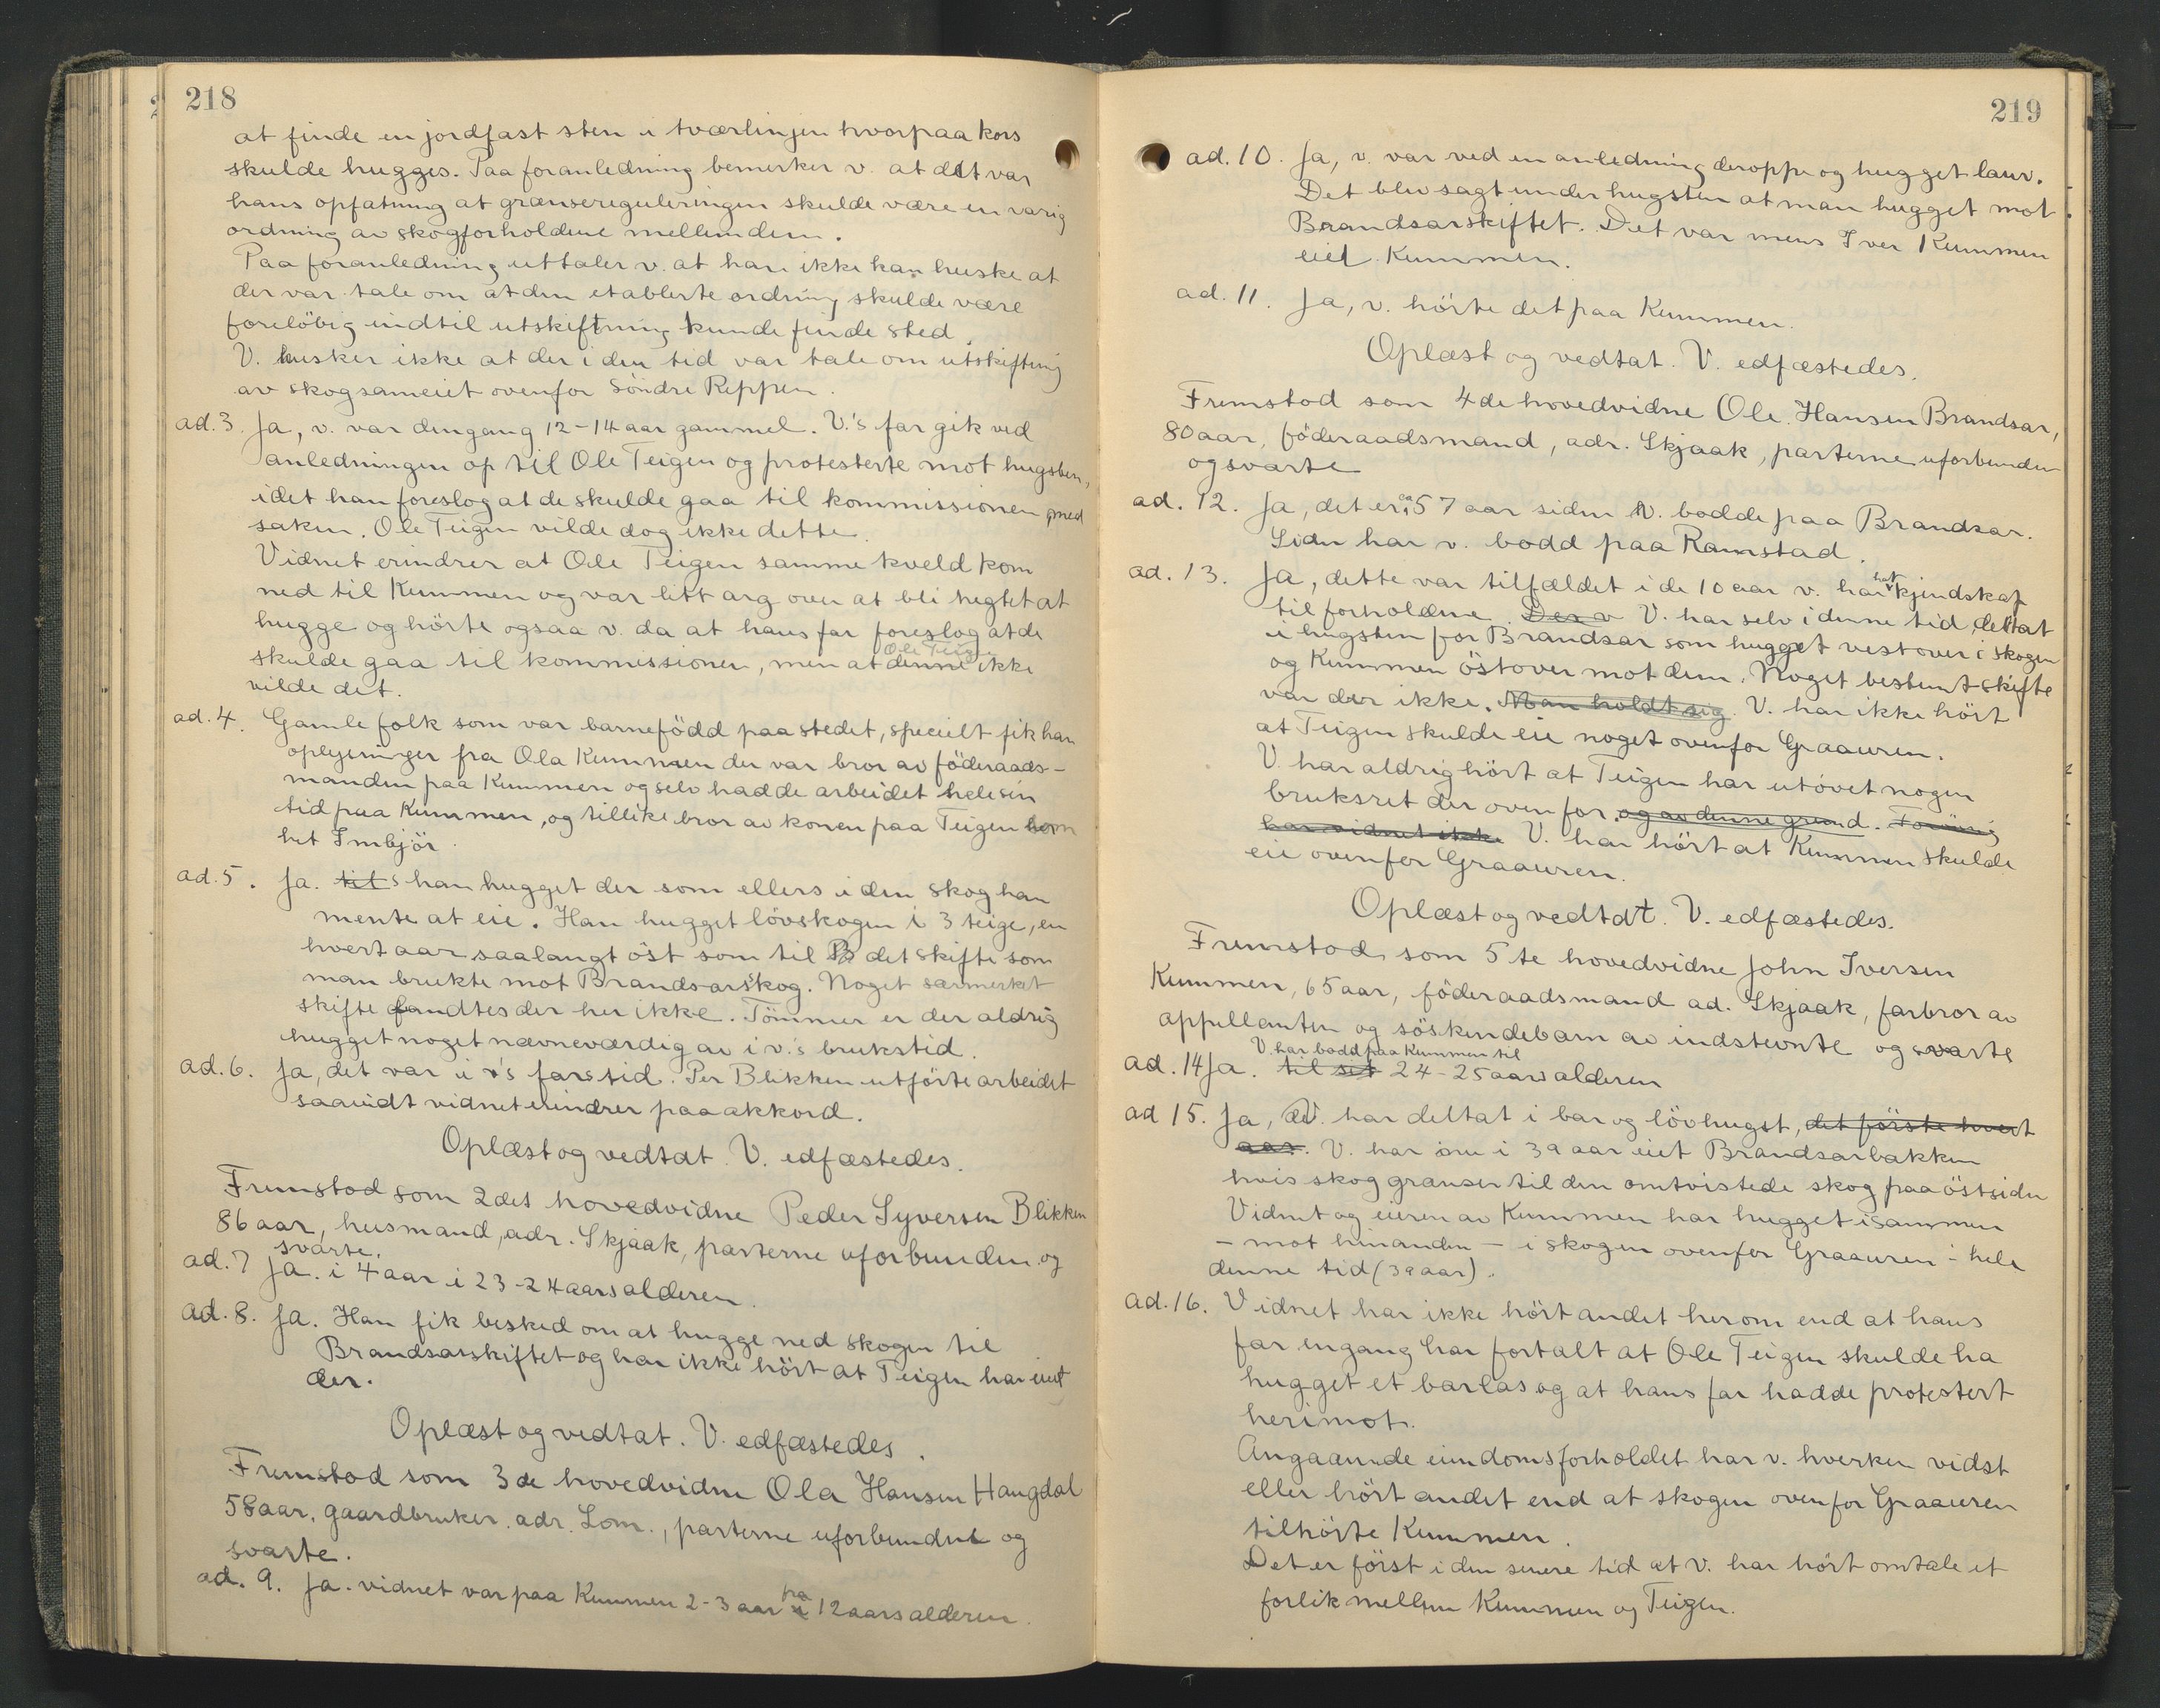 218
at finde en jordfast sten i tværlinjen hvorpaa kors
skulde hugges. Paa foranledning bemerker v. at det var
hans opfatning at grænsereguleringen skulde være en varig
ordning av skogforholdene mellem dem.
Paa foranledning uttaler v. at han ikke kan huske at
der var tale om at den etablerte ordning skulde være
foreløbig indtil utskiftning kunde finde sted.
V. husker ikke at der i den tid var tale om utskifting
av skogsameiet ovenfor Söndre Reppen.
ad. 3. Ja, v. var dengang 12-14 aar gammel. V.'s far gik ved
anledningen op til Ole Teigen og protesterte mot hugsten,
idet han foreslog at de skulde gaa til kommissionen med
saken. Ole Teigen vilde dog ikke dette.
Vidnet erindrer at Ole Teigen samme kveld kom
ned til Kummen og var litt arg over at bli negtet at
hugge og hörte ogsaa v. da at hans far foreslog at de
skulde gaa til kommissionen, men at denne Ole Teigen ikke
vilde det.
ad. 4. Gamle folk som var barnefödd paa stedet, specielt fik han
oplysninger fra Ola Kummen der var bror av föderaads-
manden paa Kummen og selv hadde arbeidet hele sin
tid paa Kummen, og tillike bror av konen paa Teigen som
het Imbjör.
ad. 5. Ja. til s han hugget der som ellers i den skog han
mente at eie. Han hugget lövskogen i 3 teige, en
hvert aar saalangt öst som til B det skifte som
man brukte mot Brandsarskog. Noget særmerket
skifte fandtes der her ikke. Tömmer er der aldrig
hugget noget nævneværdig av i v.'s brukstid.
ad. 6. Ja, det var i v's fars tid. Per Blikken utförte arbeidet
saavidt vidnet erindrer paa akkord.
Oplæst og vedtat. V. edfæstedes.
Fremstod som 2det hovedvidne Peder Syversen Blikken
86 aar, husmand, adr. Skjaak, parterne uforbunden og
svarte.
ad. 7 Ja. i 4 aar i 23-24 aars alderen.
ad. 8. Ja. Han fik besked om at hugge ned skogen til
Brandsarskiftet og har ikke hört at Teigen har eiet
der.
Oplæst og vedtat. V. edfæstedes.
Fremstod som 3de hovedvidne Ola Hansen Haugdal
58 aar, gaardbruker. adr. Lom., parterne uforbundne og
svarte.
ad. 9. Ja. vidnet var paa Kummen 2-3 aar i fra 12 aars alderen.
219
ad. 10. Ja, v. var ved en anledning deroppe og hugget lauv.
Det blev sagt under hugsten at man hugget mot
Brandsarskiftet. Det var mens Iver Kummen
eiet Kummen.
ad. 11. Ja, v. hörte det paa Kummen.
Oplæst og vedtat. V. edfæstedes.
Fremstod som 4de hovedvidne Ole Hansen Brandsar,
80 aar, föderaadsmand, adr. Skjaak, parterne uforbunden
og svarte
ad. 12. Ja, det er ca 57 aar siden V. bodde paa Brandsar.
Siden har v. bodd paa Ramstad.
ad. 13. Ja, dette var tilfældet i de 10 aar v. har hat kjendskap
til forholdene. Der v V. har selv i denne tid deltat
i hugsten for Brandsar som hugget vestover i skogen
og Kummen östover mot dem. Noget bestemt skifte
var der ikke. Man holdt sig V. har ikke hört
at Teigen skulde eie noget ovenfor Graauren.
V. har aldrig hört at Teigen har utövet nogen
bruksret der ovenfor. og av denne grund. Forövrig
har vidnet ikke V. har hört at Kummen skulde
eie ovenfor Graauren.
Oplæst og vedtat. V. edfæstedes.
Fremstod som 5te hovedvidne John Iversen
Kummen, 65 aar, föderaadsmand ad. Skjaak, farbror av
appellanten og söskendebarn av indstevnte og svarte
V. har bodd paa Kummen til
ad. 14 Ja. til sit 24-25 aars alderen
ad 15. Ja, V. har deltat i bar og lövhugst, det förste hvert
aar. V. har nu i 39 aar eiet Brandsarbakken
hvis skog grænser til den omtvistede skog paa östsiden
Vidnet og eieren av Kummen har hugget isammen
- mot hinanden - i skogen ovenfor Graauren i hele
denne tid (39 aar).
ad. 16. Vidnet har ikke hört andet herom end at hans
far engang har fortalt at Ole Teigen skulde ha
hugget et barlas og at hans far hadde protestert
herimot.
Angaaende eiendomsforholdet har v. hverken vidst
eller hört andet end at skogen ovenfor Graauren
tilhörte Kummen.
Det er först i den senere tid at v. har hört omtale et
forlik mellem Kummen og Teigen.